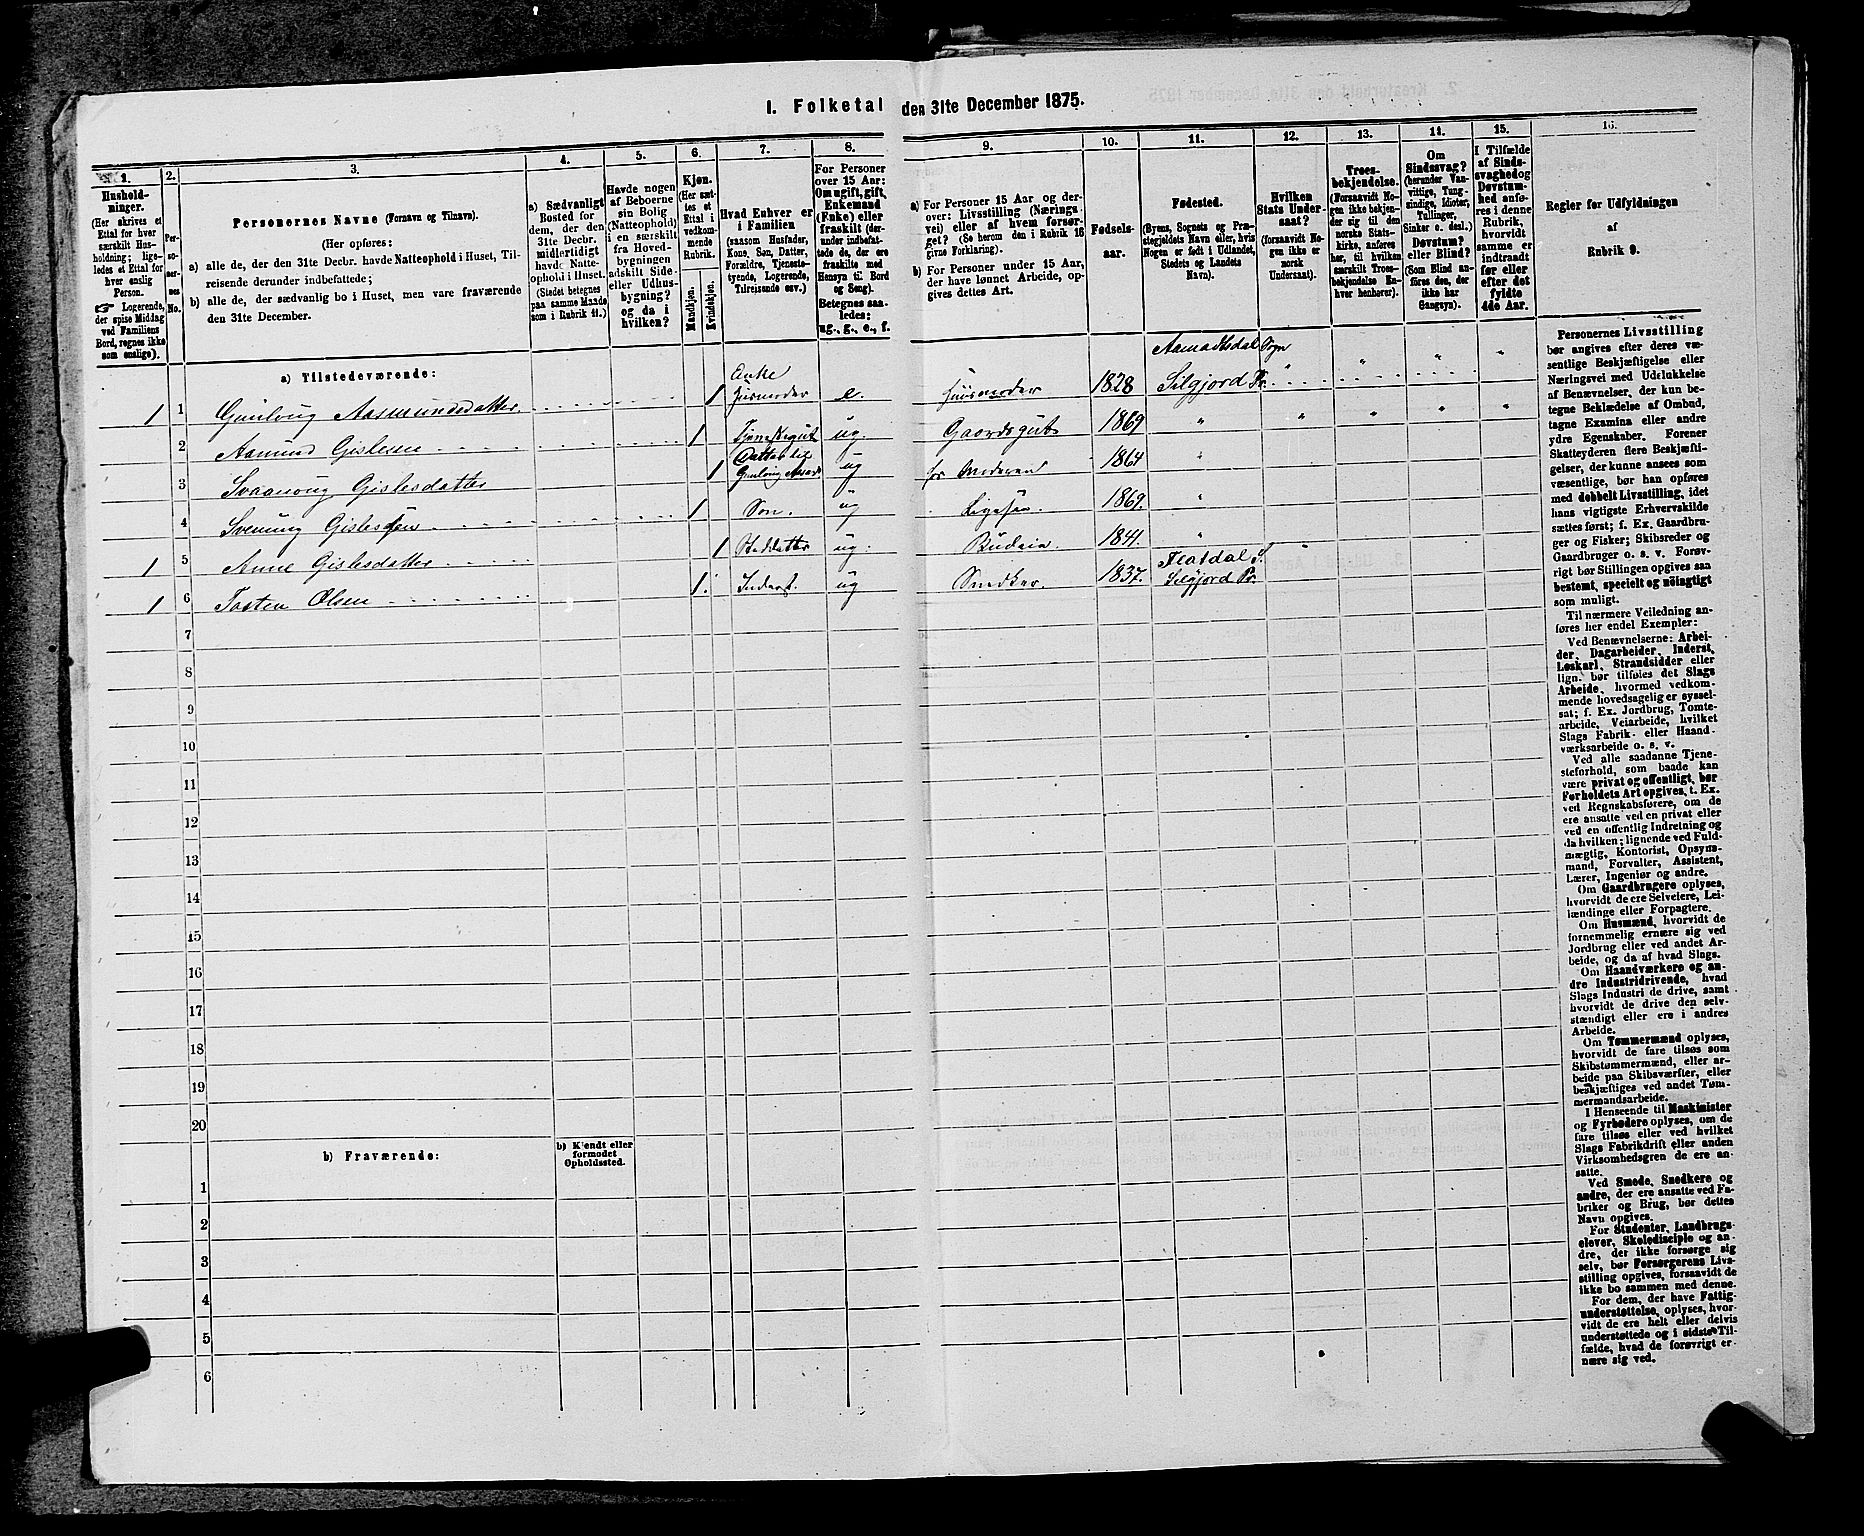 1. Folketal den 31te December 1875.
1.
Hushold-
ninger.
(Her skrives et
Ettal for hver
særskilt Hus-
holdning; lige-
ledes et Ettal for
hver enslig
Person.
☞ Logerende,
der spise Middag
ved Familiens
Bord, regnes ikke
som enslige).
2.
Per-
so-
ner-
nes
No.
3.
Personernes Navne (Fornavn og Tilnavn).
(Her opføres:
a) alle de, der den 31te Decbr. havde Natteophold i Huset, Til-
reisende derunder indbefattede;
b) alle de, der sædvanlig bo i Huset, men vare fraværende
den 31te December.
4.
a) Sædvanligt
Bosted for
dem, der den
31te Decbr.
midlertidigt
havde Natte-
ophold i Huset.
(Stedet betegnes
paa samme Maade
som i Rubrik 11.)
5.
Havde nogen
af Beboerne
sin Bolig
(Natteophold)
i en særskilt
fra Hoved-
bygningen
adskilt Side-
eller Udhus-
bygning?
og da i
hvilken?
6.
Kjøn.
(Her sæt-
tes et
Ettal i
vedkom-
mende
Rubrik.
Mandkjøn.
Kvindekjøn.
7.
Hvad Enhver er
i Familien
(saasom Husfader,
Kone, Søn, Datter,
Forældre, Tjeneste-
tyende, Logerende,
Tilreisende osv.)
8.
For Personer
over 15 Aar:
Om ugift, gift,
Enkemand
(Enke) eller
fraskilt (der-
under indbefat-
tede de, der ere
fraskilte med
Hensyn til Bord
og Seng).
Betegnes saa-
ledes:
ug., g., e., f.
9.
a) For Personer 15 Aar og der-
over: Livsstilling (Nærings-
vei) eller af hvem forsør-
get? (Se herom den i Rubrik 16
givne Forklaring).
b) For Personer under 15 Aar,
der have lønnet Arbeide, op-
gives dettes Art.
10.
Fødsels-
aar.
11.
Fødested.
(Byens, Sognets og Præ-
stegjeldets Navn eller, hvis
Nogen er født i Udlandet,
Stedets og Landets
Navn).
12.
Hvilken
Stats Under-
saat?
(forsaavidt No-
gen ikke er
norsk
Undersaat).
13.
Troes-
bekjendelse.
(Forsaavidt No-
gen ikke bekjen-
der sig til den
norske Stats-
kirke, anføres
her, til hvilken
særskilt Troes-
bekjendelse En-
hver henhører).
14.
Om
Sindssvag?
(herunder Van-
vittige, Tung-
sindige, Idioter,
Tullinger,
Sinker o. desl.)
Døvstum?
eller Blind?
(Som Blind an-
føres den, der
ikke har
Gangsyn).
15.
I Tilfælde
af Sinds-
svaghed og
Døvstum-
hed anfø-
res i denne
Rubrik,
hvorvidt
samme er
indtraadt
før eller
efter det
fyldte
4de Aar.
16.
Regler for Udfyldningen
af
Rubrik 9.
a) Tilstedeværende:
1 1 Gunloug Aasmundsdatter 1 Enke Husmoder e. Huusmoder 1828 Aamodtsdal Sogn Silgjord Pr. " " "
2 Aamund Gislesen 1 Tjenestegut ug. Gaardsgut 1869 " " " " "
3 Svanaug Gislesdatter 1 Datter til Gunloug Aasmds ug for Moderen 1864 "
4 Svenung Gislesøn 1 Son. ug Ligesaa. 1869. "
1 5 Anne Gislesdatter 1 Steddatter ug. Budeia. 1841. "
1 6 Tosten Olsen 1 Inderst. ug Snedker 1837. Flatdal S. Silgjord Pr. "
7
8
9
10
11
12
13
14
15
16
17
18
19
20
b) Fraværende:
b) Kjendt eller
formodet
Opholdssted.
1
2
3
4
5
6
Personernes Livsstilling
bør angives efter deres væ-
sentlige Beskjæftigelse eller
Næringsvei med Udelukkelse
af Benævnelser, der kun be-
tegne Beklædelse af Ombud,
tagne Examina eller andre
ydre Egenskaber. Forener
Skatteyderen flere Beskjæfti-
gelser, der kunne ansees som
væsentlige, bør han opføres
med dobbelt Livsstilling, idet
hans vigtigste Erhvervskilde
sættes først; f. Ex. Gaardbru-
ger og Fisker; Skibsreder og
Gaardbruger o. s. v. Forøv-
rigt bør Stillingen opgives saa
bestemt, specielt og nöiagtigt
som muligt.
Til nærmere Veiledning an-
føres her endel Exempler:
Ved Benævnelserne: Arbei-
der, Dagarbeider, Inderst,
Løskarl, Strandsidder eller
lign. bør tilføies det Slags
Arbeide, hvormed vedkom-
mende hovedsagelig er syssel-
sat; f. Ex. Jordbrug, Tomte-
arbeide, Veiarbeide, hvilket
Slags Fabrik- eller Haand-
værksarbeide o. s. v.
Ved alle saadanne Tjene-
steforhold, som baade kan
være privat og offentligt, bør
Forholdets Art opgives, t. Ex.
ved Regnskabsførere, om de
ere ansatte ved en privat eller
ved en offentlig Indretning og
da hvilken; lignende ved Fuld-
mægtig, Kontorist, Opsyns-
mand, Forvalter, Assistent,
Lærer, Ingeniør og andre.
Om Gaardbrugere oplyses,
hvorvidt de ere Selveiere, Lei-
lændinge eller Forpagtere.
Om Husmænd, hvorvidt de
fornemmelig ernære sig ved
Jordbrug eller ved andet Ar-
beide, og da af hvad Slags.
Om Haandværkere og an-
dre Industridrivende, hvad
Slags Industri de drive, samt
hvorvidt de drive den selv-
stændigt eller ere i andres
Arbeide.
Om Tømmermænd oplyses,
hvorvidt de fare tilsøs som
Skibstømmermænd, eller ar-
beide paa Skibsværfter, eller
beskjæftiges ved andet Tøm-
mermandsarbeide.
I Henseende til Maskinister
og Fyrbødere oplyses, om de
fare tilsøs eller ved hvilket
Slags Fabrikdrift eller anden
Virksomhedsgren de ere an-
satte.
Ved Smede, Snedkere og
andre, der ere ansatte ved Fa-
briker og Brug, bør dettes
Navn opgives.
For Studenter, Landbrugs-
elever, Skoledisciple og an-
dre, der ikke forsørge sig
selv, bør Forsørgerens Livs-
stilling opgives, forsaavidt de
ikke bo sammen med denne.
For dem, der have Fattig-
understøttelse, oplyses, hvor-
vidt de ere helt eller delvis
understøttede og i sidste Til-
fælde, hvad de forøvrigt er-
nære sig ved.